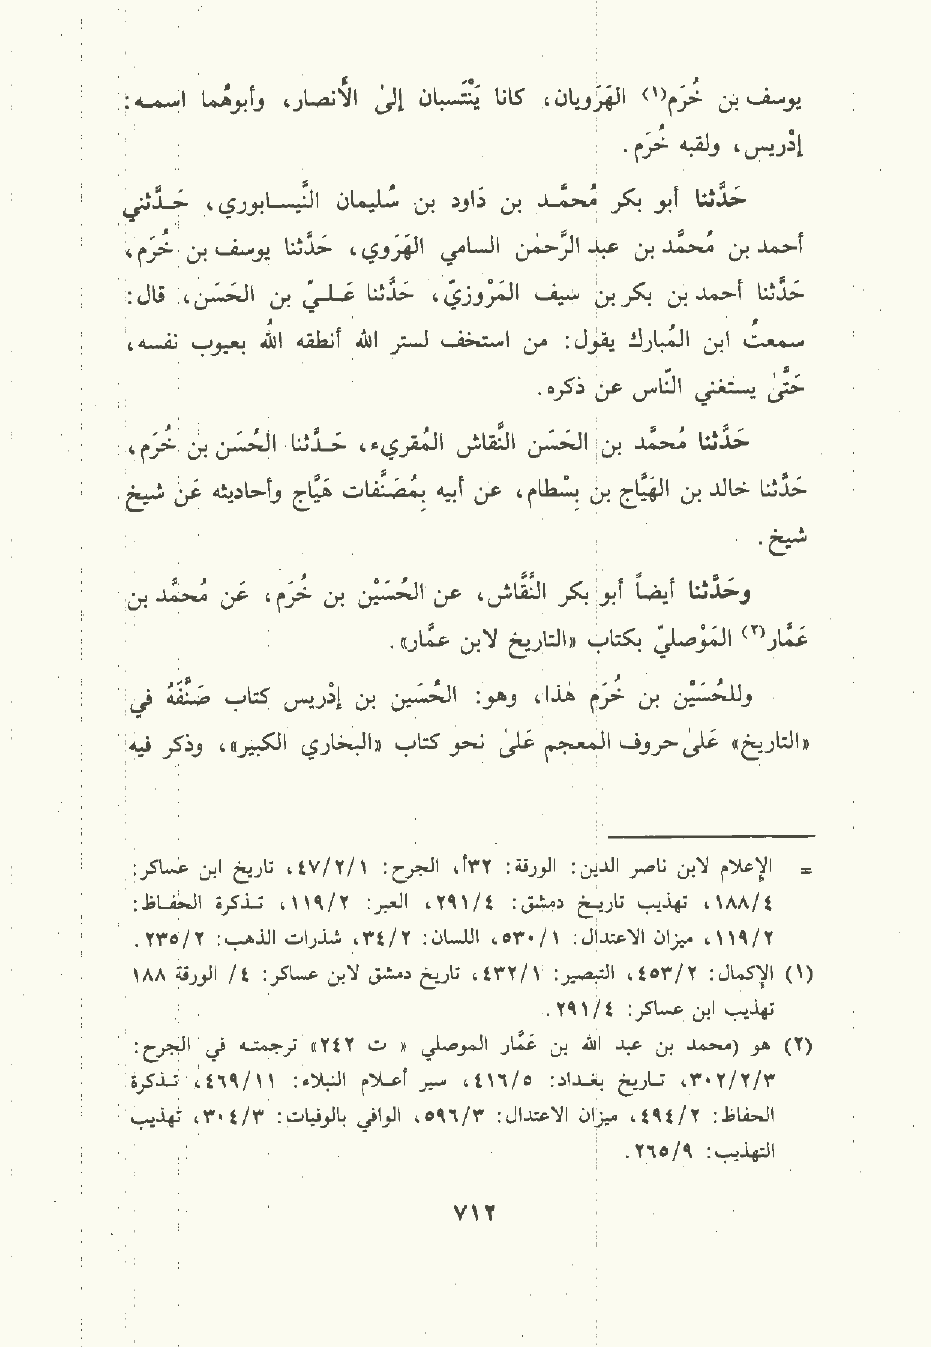 يوسف بن خُرَم(١) الهَرَويان، كانا يَنْتَسبان إلىٰ الأنصار، وأبوهُما اسمـه:
إدْريس، ولقبه خُرَم.
حَدَّثنا أبو بكر مُحمَّـد بن داود بن سُليمان النَّيسـابوري، حَـدَّثني
أحمد بن مُحمَّد بن عبد الرَّحمٰن السامي الهَرَوي، حَدَّثنا يوسف بن خُرَم،
حَدَّثنا أحمد بن بكر بن سيف المَرْوزيّ، حَدَّثنا عَـلـيّ بن الحَسَن، قال:
سمعتُ ابن المُبارك يقول: من استخف لستر الله أنطقه اللهُ بعيوب نفسه،
حَتَّىٰ يستغني النَّاس عن ذكره.
حَدَّثنا مُحمَّد بن الحَسَن النَّقاش المُقريء، حَـدَّثنا الحُسَن بن خُرَم،
حَدَّثنا خالد بن الهَيَّاج بن بِسْطام، عن أبيه بِمُصَنَّفات هَيَّاج وأحاديثه عَن شيخ
شيخ.
وحَدَّثنا أيضاً أبو بكر النَّقَّاش، عن الحُسَيْن بن خُرَم، عَن مُحمَّد بن
عَمَّار(٢) المَوْصليّ بكتاب «التاريخ لابن عمَّار».
وللحُسَيْن بن خُرَم هَذا، وهو: الحُسَين بن إدْريس كتاب صَنَّفَهُ في
«التاريخ» عَلىٰ حروف المعجم عَلىٰ نحو كتاب «البخاري الكبير»، وذكر فيه
= الإعلام لابن ناصر الدين: الورقة: ٣٢أ، الجرح: ٤٧/٢/١، تاريخ ابن عساكر:
١٨٨/٤، تهذيب تاريخ دمشق: ٢٩١/٤، العبر: ١١٩/٢، تـذكرة الحفـاظ:
١١٩/٢، ميزان الاعتدال: ٥٣٠/١، اللسان: ٣٤/٢، شذرات الذهب: ٢٣٥/٢.
(١) الإكمال: ٤٥٣/٢، التبصير: ٤٣٢/١، تاريخ دمشق لابن عساكر: ٤/ الورقة ١٨٨
تهذيب ابن عساكر: ٢٩١/٤.
(٢) هو (محمد بن عبد الله بن عَمَّار الموصلي « ت ٢٤٢» ترجمتـه في الجرح:
٣٠٢/٢/٣، تـاريخ بغـداد: ٤١٦/٥، سير أعـلام النبلاء: ٤٦٩/١١، تـذكرة
الحفاظ: ٤٩٤/٢، ميزان الاعتدال: ٥٩٦/٣، الوافي بالوفيات: ٣٠٤/٣، تهذيب
التهذيب: ٢٦٥/٩.
٧١٢